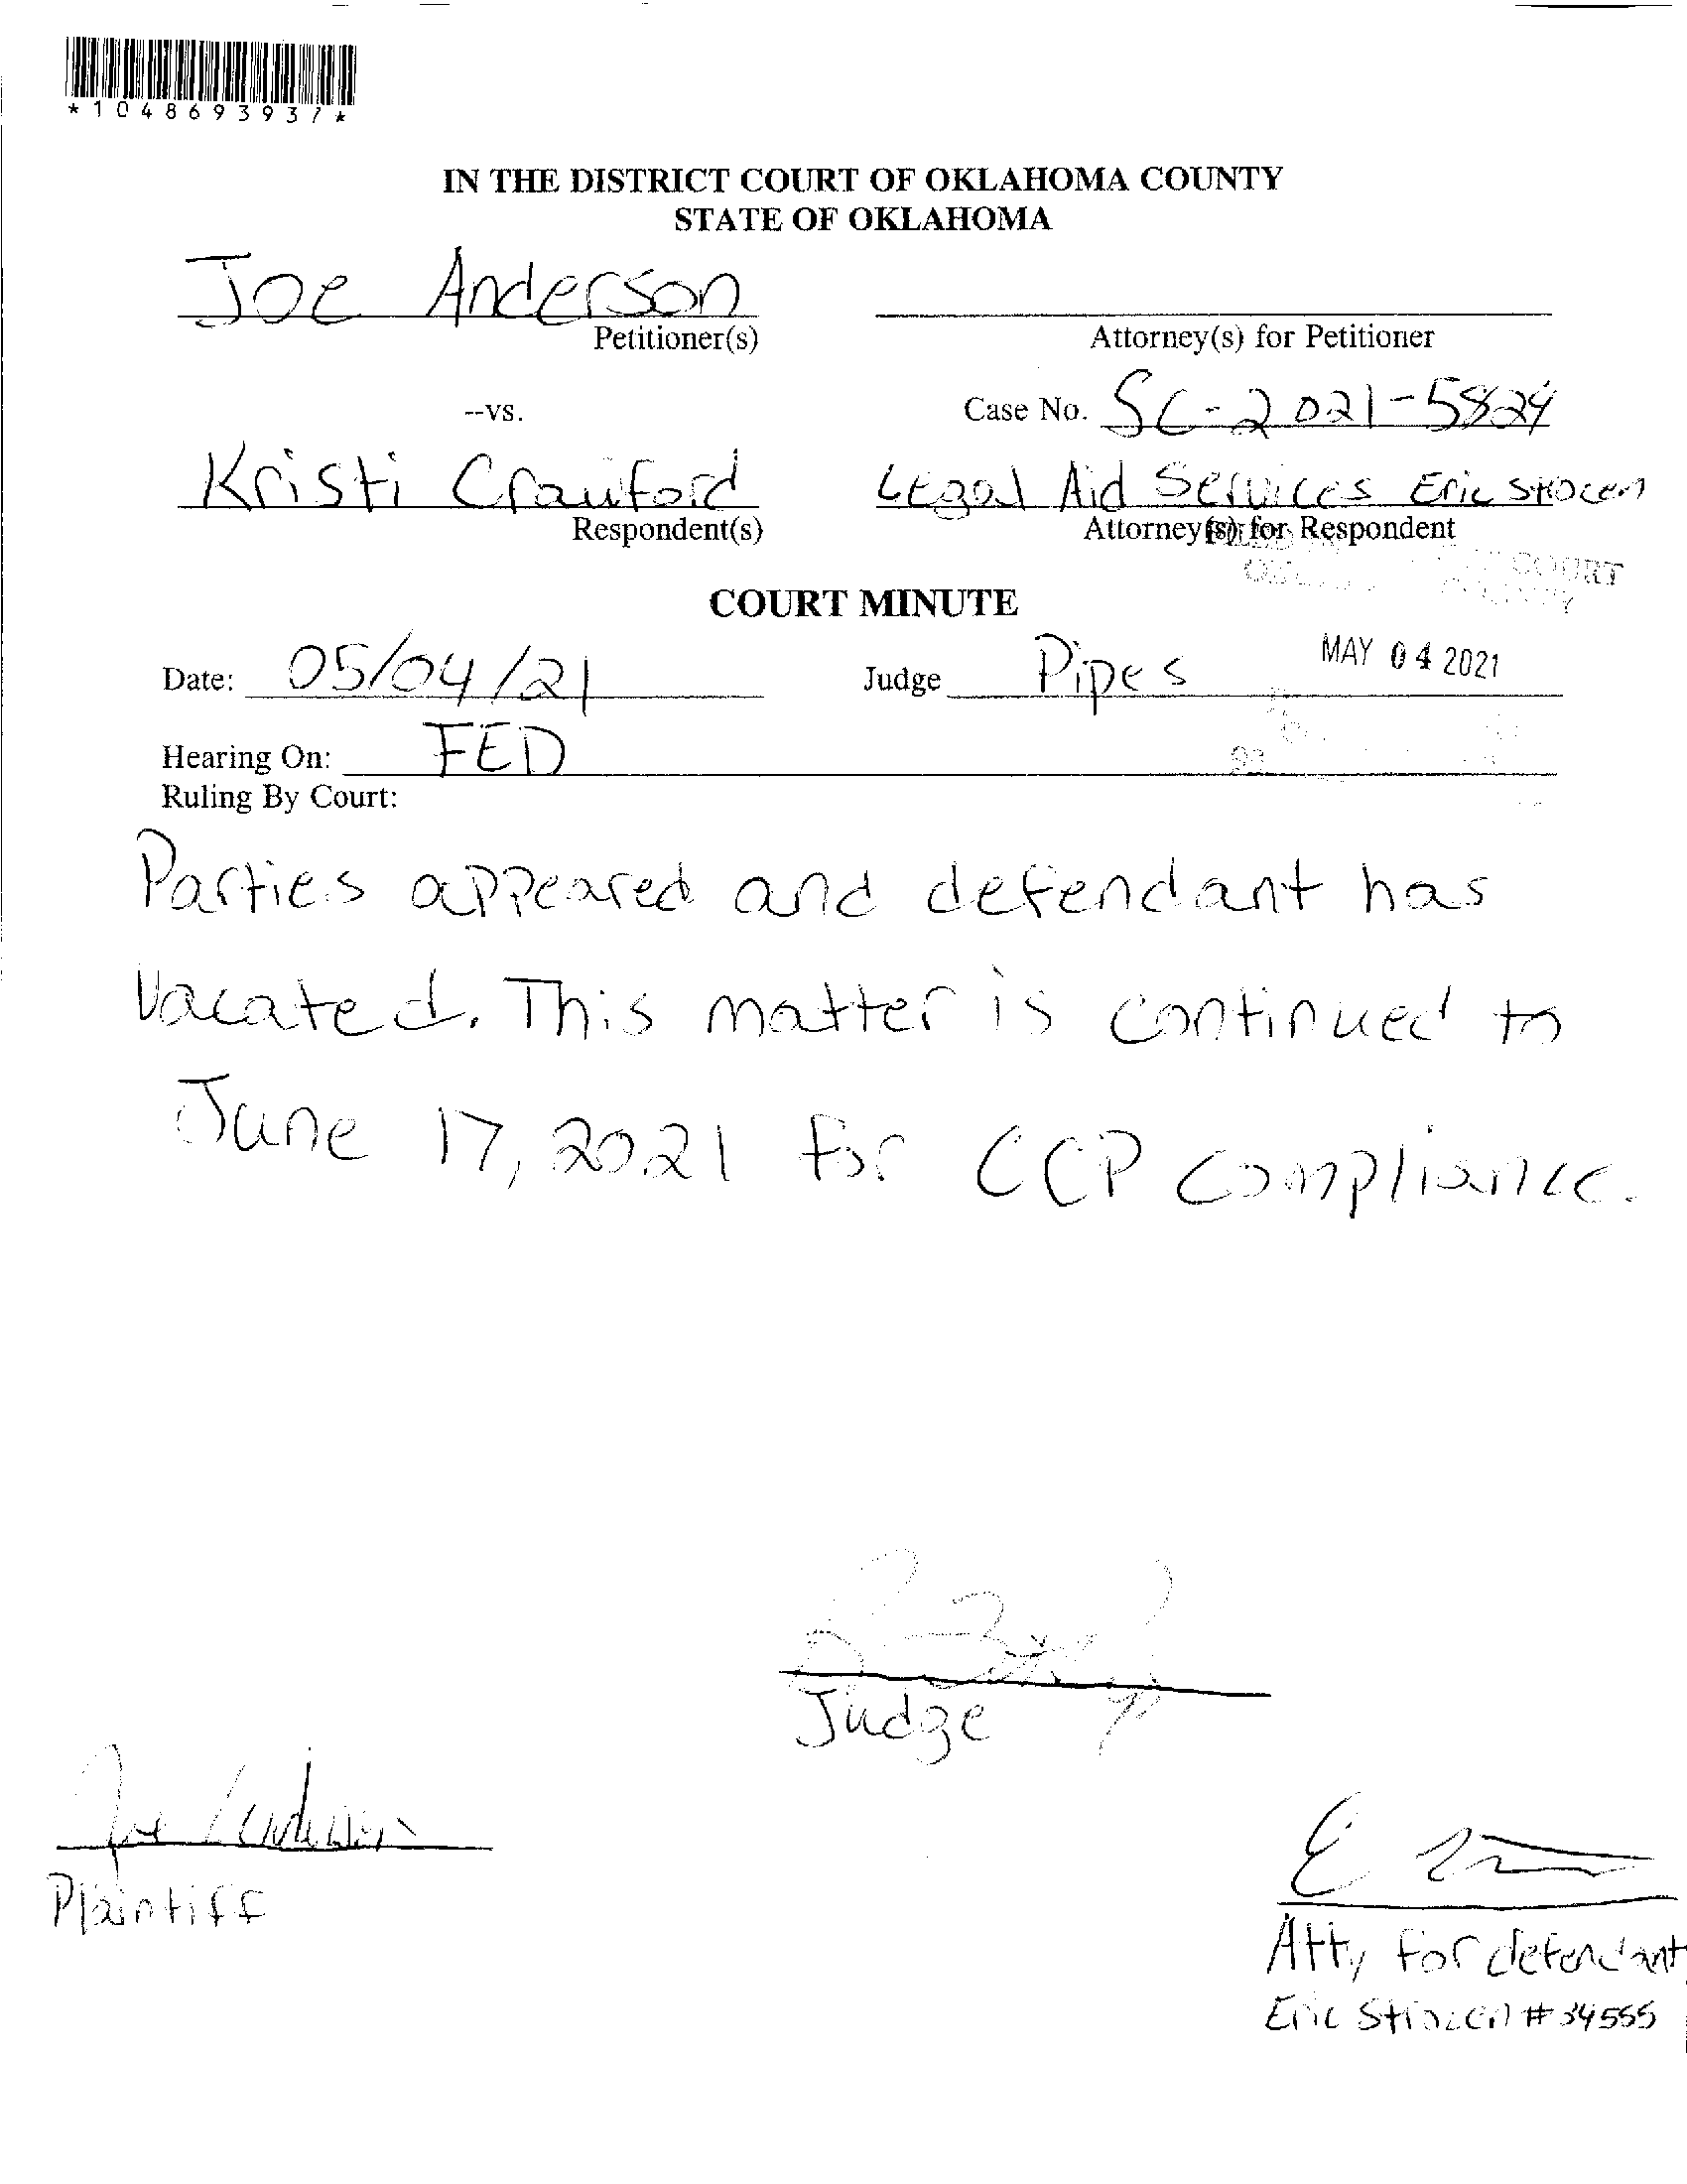 *1048693937*
IN THE DISTRICT COURT OF OKLAHOMA COUNTY
STATE OF OKLAHOMA
Joe Anderson
Petitioner(s)
Attorney(s) for Petitioner
--vs.
Case No. SC-2021-5824
Kristi Crawford
Legal Aid Services Eric
Respondent(s)
Attorney(s) for Respondent
COURT
COURT MINUTE
Date: 05/04/21
Judge Pipes
MAY 04 2021
Hearing On: FED
Ruling By Court:
Parties appeared and defendant has
vacated. This matter is continued to
June 17, 2021 for CCP compliance.
Judge
Joe Anderson
Plaintiff
Atty for defendant
Eric #34555